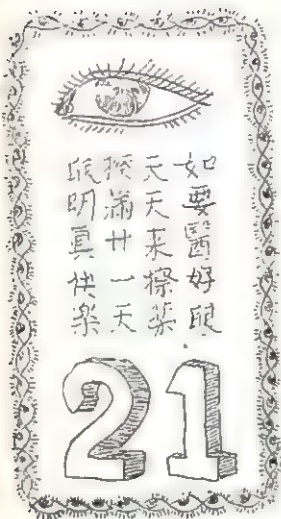 如要醫好眼
天天来擦药
擦滿廿一天
眼明真快樂
21